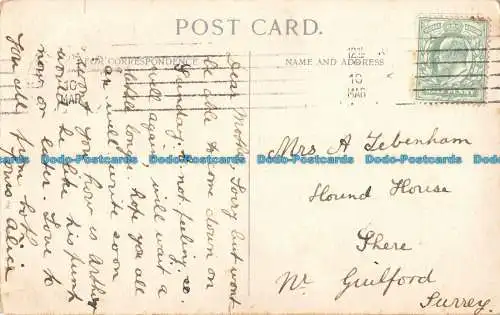 POST CARD.
FOR CORRESPONDENCE
NAME AND ADDRESS
Dear Mother, Sorry but wont
be able to come down on
Sunday. not feeling so
well again, will wait a
little longer. hope you all
are well write soon
how is Arthur
would he like his
now or later. Love to
you all from both
Yours Alice
Mrs A Tebenham
Hound House
Shere
Nr Guilford
Surrey.
12
10
MAR
MAR
Dodo-Postcards Dodo-Postcards Dodo-Postcards Dodo-Postcards
Dodo-Postcards Dodo-Postcards Dodo-Postcards Dodo-Postcards